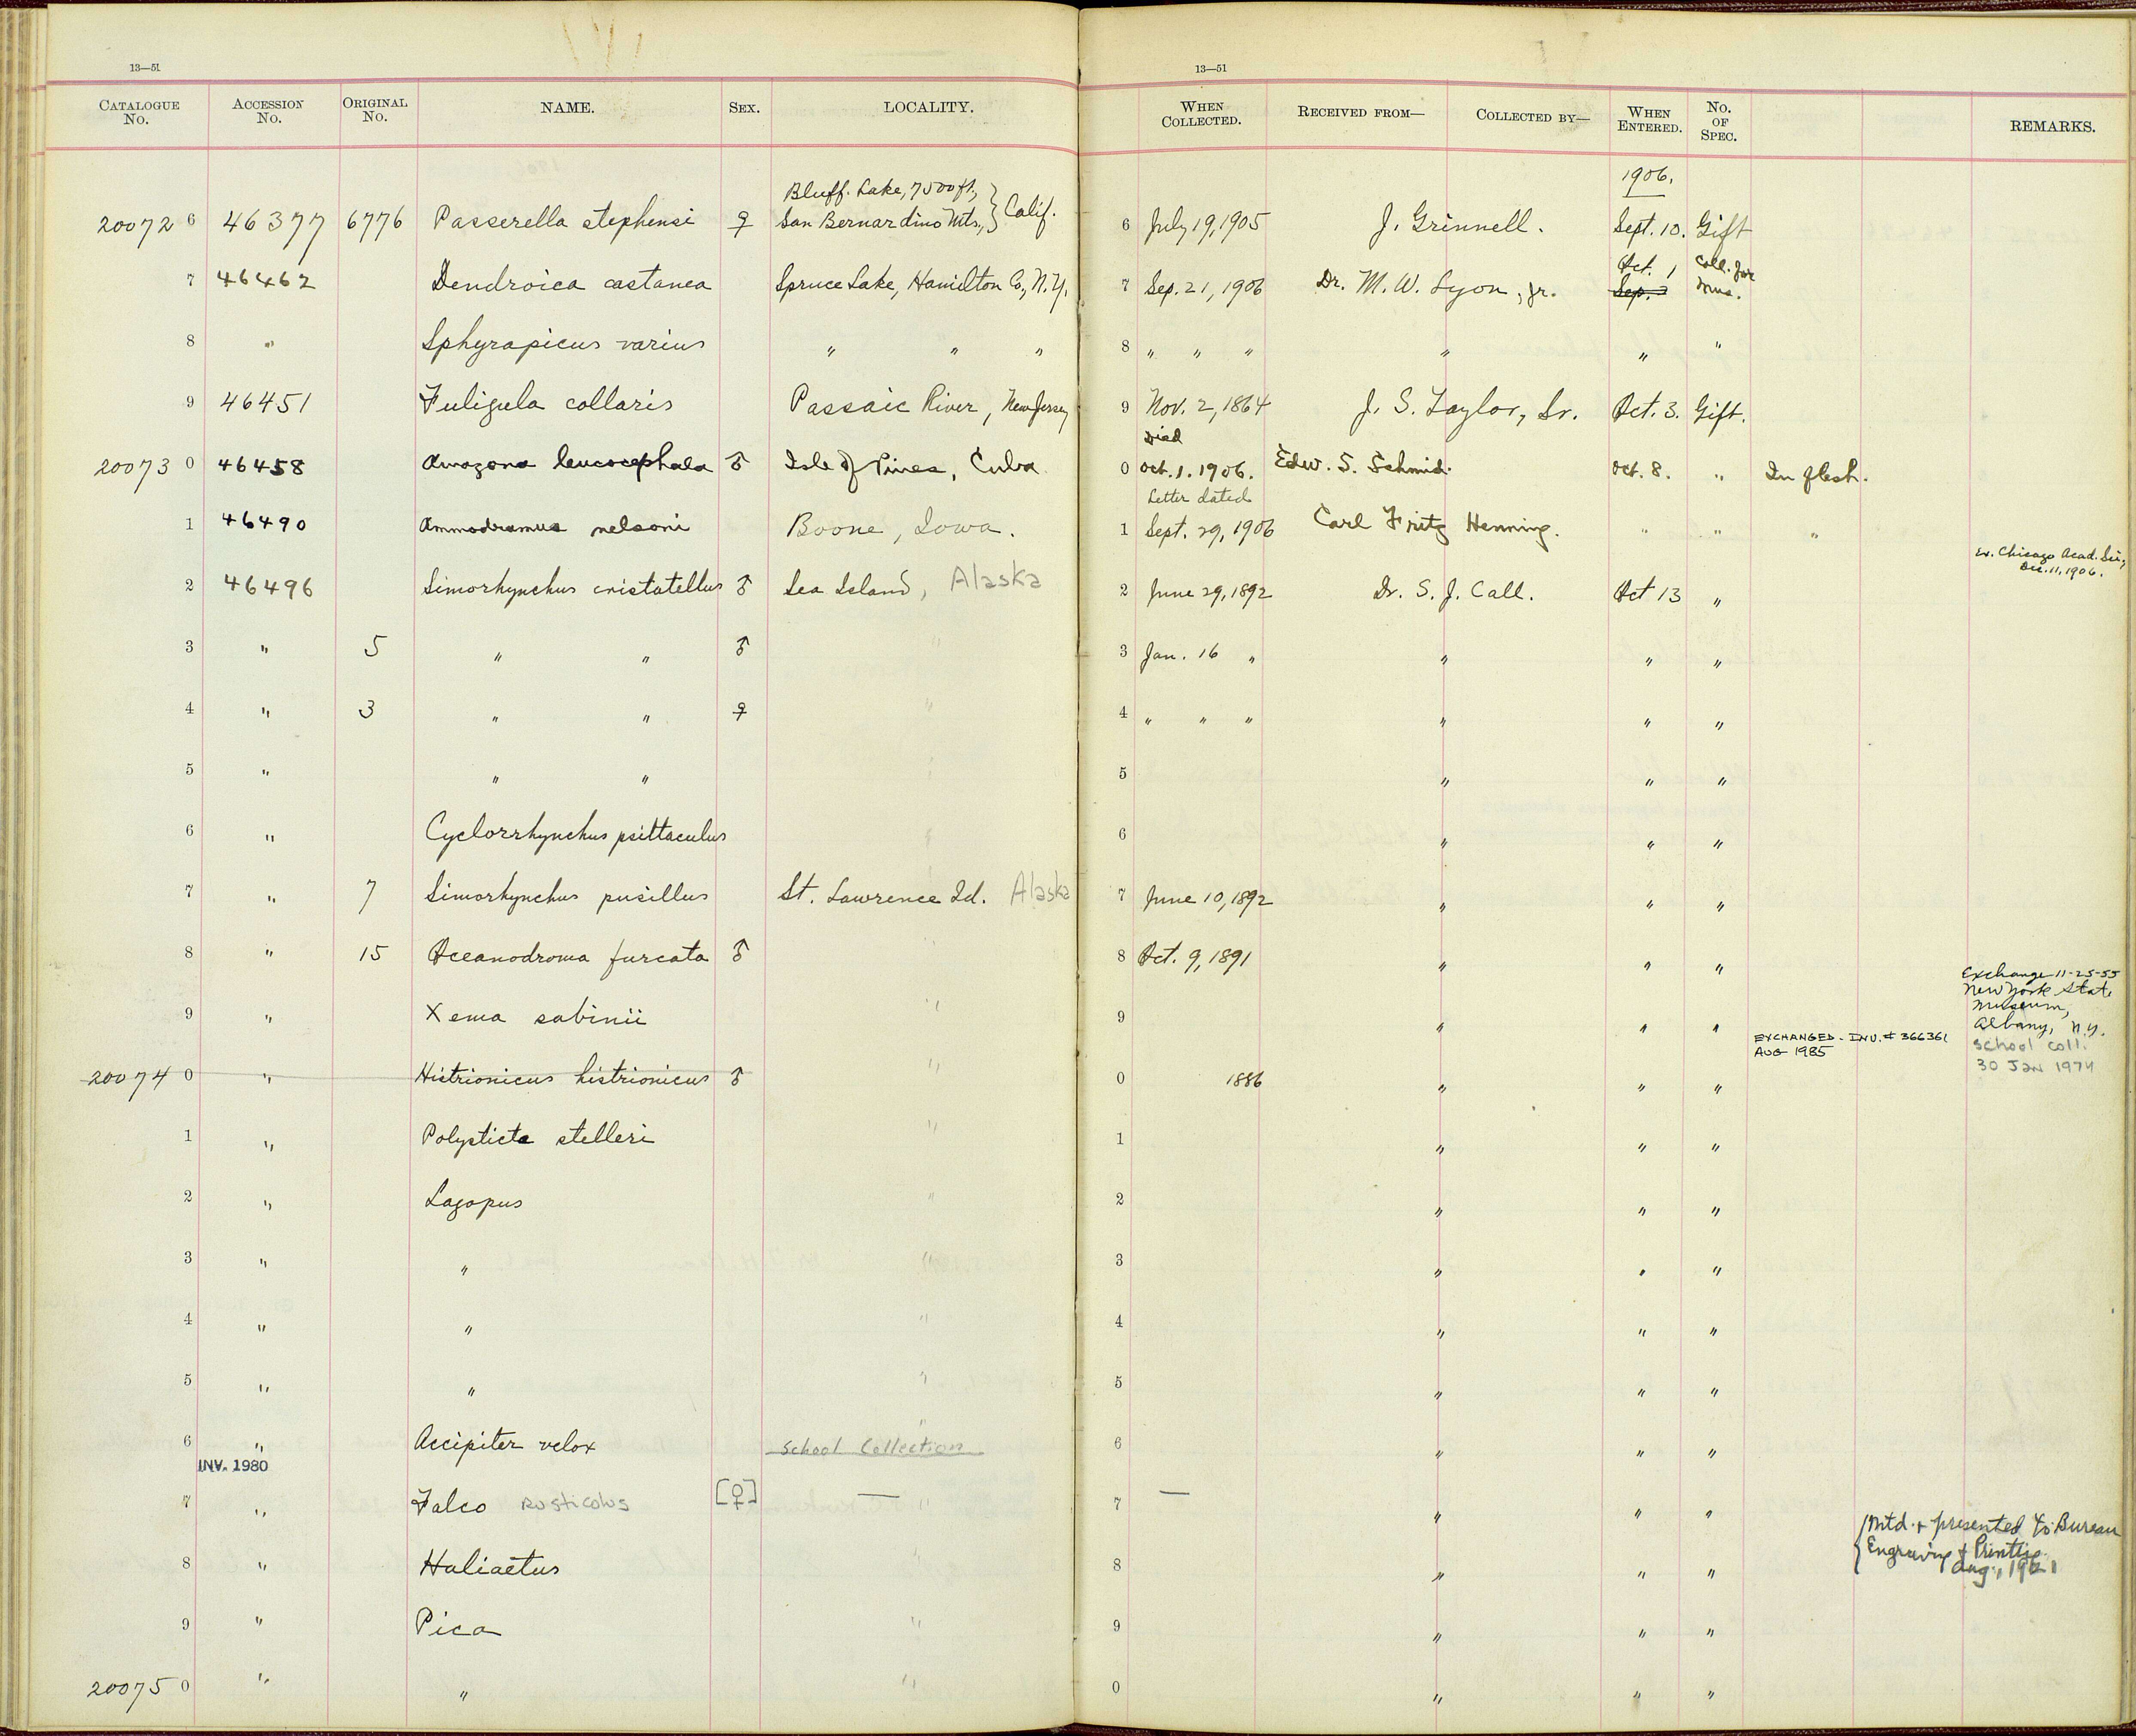 13—51
CATALOGUE No. ACCESSION No. ORIGINAL No. NAME. SEX. LOCALITY.
20072 6 46377 6776 Passerella stephensi ♀ Bluff Lake, 7500 ft., San Bernardino Mts., } Calif.
7 46462 Dendroica castanea Spruce Lake, Hamilton Co., N.Y.
8 " Sphyrapicus varius " " "
9 46451 Fuligula collaris Passaic River, New Jersey
20073 0 46458 Amazona leucocephala ♂ Isle of Pines, Cuba
1 46490 Ammodramus nelsoni Boone, Iowa.
2 46496 Simorhynchus cristatellus ♂ Sea Island, Alaska
3 " 5 " " ♂ "
4 " 3 " " ♀ "
5 " " " "
6 " Cyclorrhynchus psittaculus "
7 " 7 Simorhynchus pusillus St. Lawrence Id. Alaska
8 " 15 Oceanodroma furcata ♂ "
9 " Xema sabinii "
20074 0 " Histrionicus histrionicus ♂ "
1 " Polysticta stelleri "
2 " Lagopus "
3 " " "
4 " " "
5 " " "
6 " Accipiter velox " School Collection
INV. 1980
7 " Falco rusticolus [♀] — "
8 " Haliaetus "
9 " Pica "
20075 0 " " "
13—51
WHEN COLLECTED. RECEIVED FROM— COLLECTED BY— WHEN ENTERED. No. OF SPEC. REMARKS.
1906.
6 July 19, 1905 J. Grinnell. Sept. 10. Gift
7 Sep. 21, 1906 Dr. M. W. Lyon, jr. Oct. 1 Sep. 2 Coll. for Mus.
8 " " " " " "
9 Nov. 2, 1864 J. S. Taylor, Sr. Oct. 3. Gift.
0 Died Oct. 1. 1906. Edw. S. Schmid. Oct. 8. " In flesh.
1 Letter dated Sept. 29, 1906 Carl Fritz Henning. " " "
Ex. Chicago Acad. Sci., Dec. 11, 1906.
2 June 29, 1892 Dr. S. J. Call. Oct 13 "
3 Jan. 16 " " " "
4 " " " " " "
5 " " "
6 " " "
7 June 10, 1892 " " "
8 Oct. 9, 1891 " " "
Exchange 11-25-55
New York State
Museum,
Albany, N.Y.
9 " " "
EXCHANGED - INV. # 366361
AUG 1985
School coll.
30 Jan 1974
0 1886 " " "
1 " " "
2 " " "
3 " " "
4 " " "
5 " " "
6 " " "
7 — " " "
{ Mtd. + presented to Bureau
Engraving & Printing
Aug., 1921
8 " " "
9 " " "
0 " " "